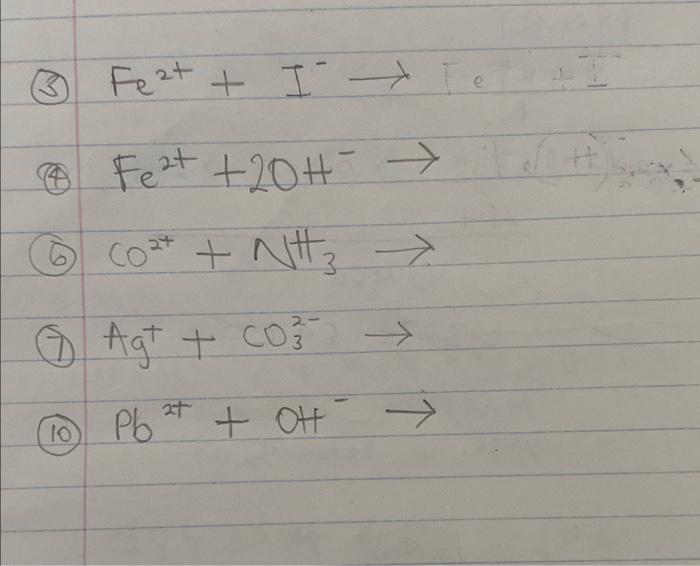 ③ Fe²⁺ + I⁻ → Fe + I⁻
④ Fe²⁺ + 2OH⁻ →
⑥ CO²⁺ + NH₃ →
⑦ Ag⁺ + CO₃²⁻ →
⑩ Pb²⁺ + OH⁻ →